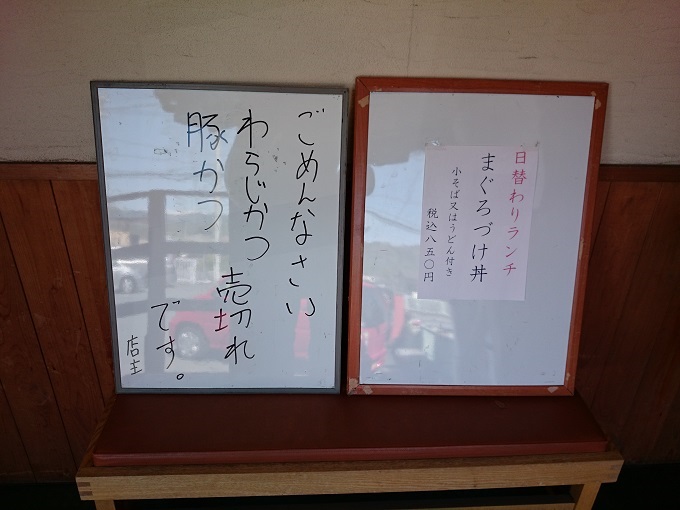 ごめんなさい
わらじかつ 売切れ
豚かつ
です。
店主
日替わりランチ
まぐろづけ丼
小そば又はうどん付き
税込八五〇円